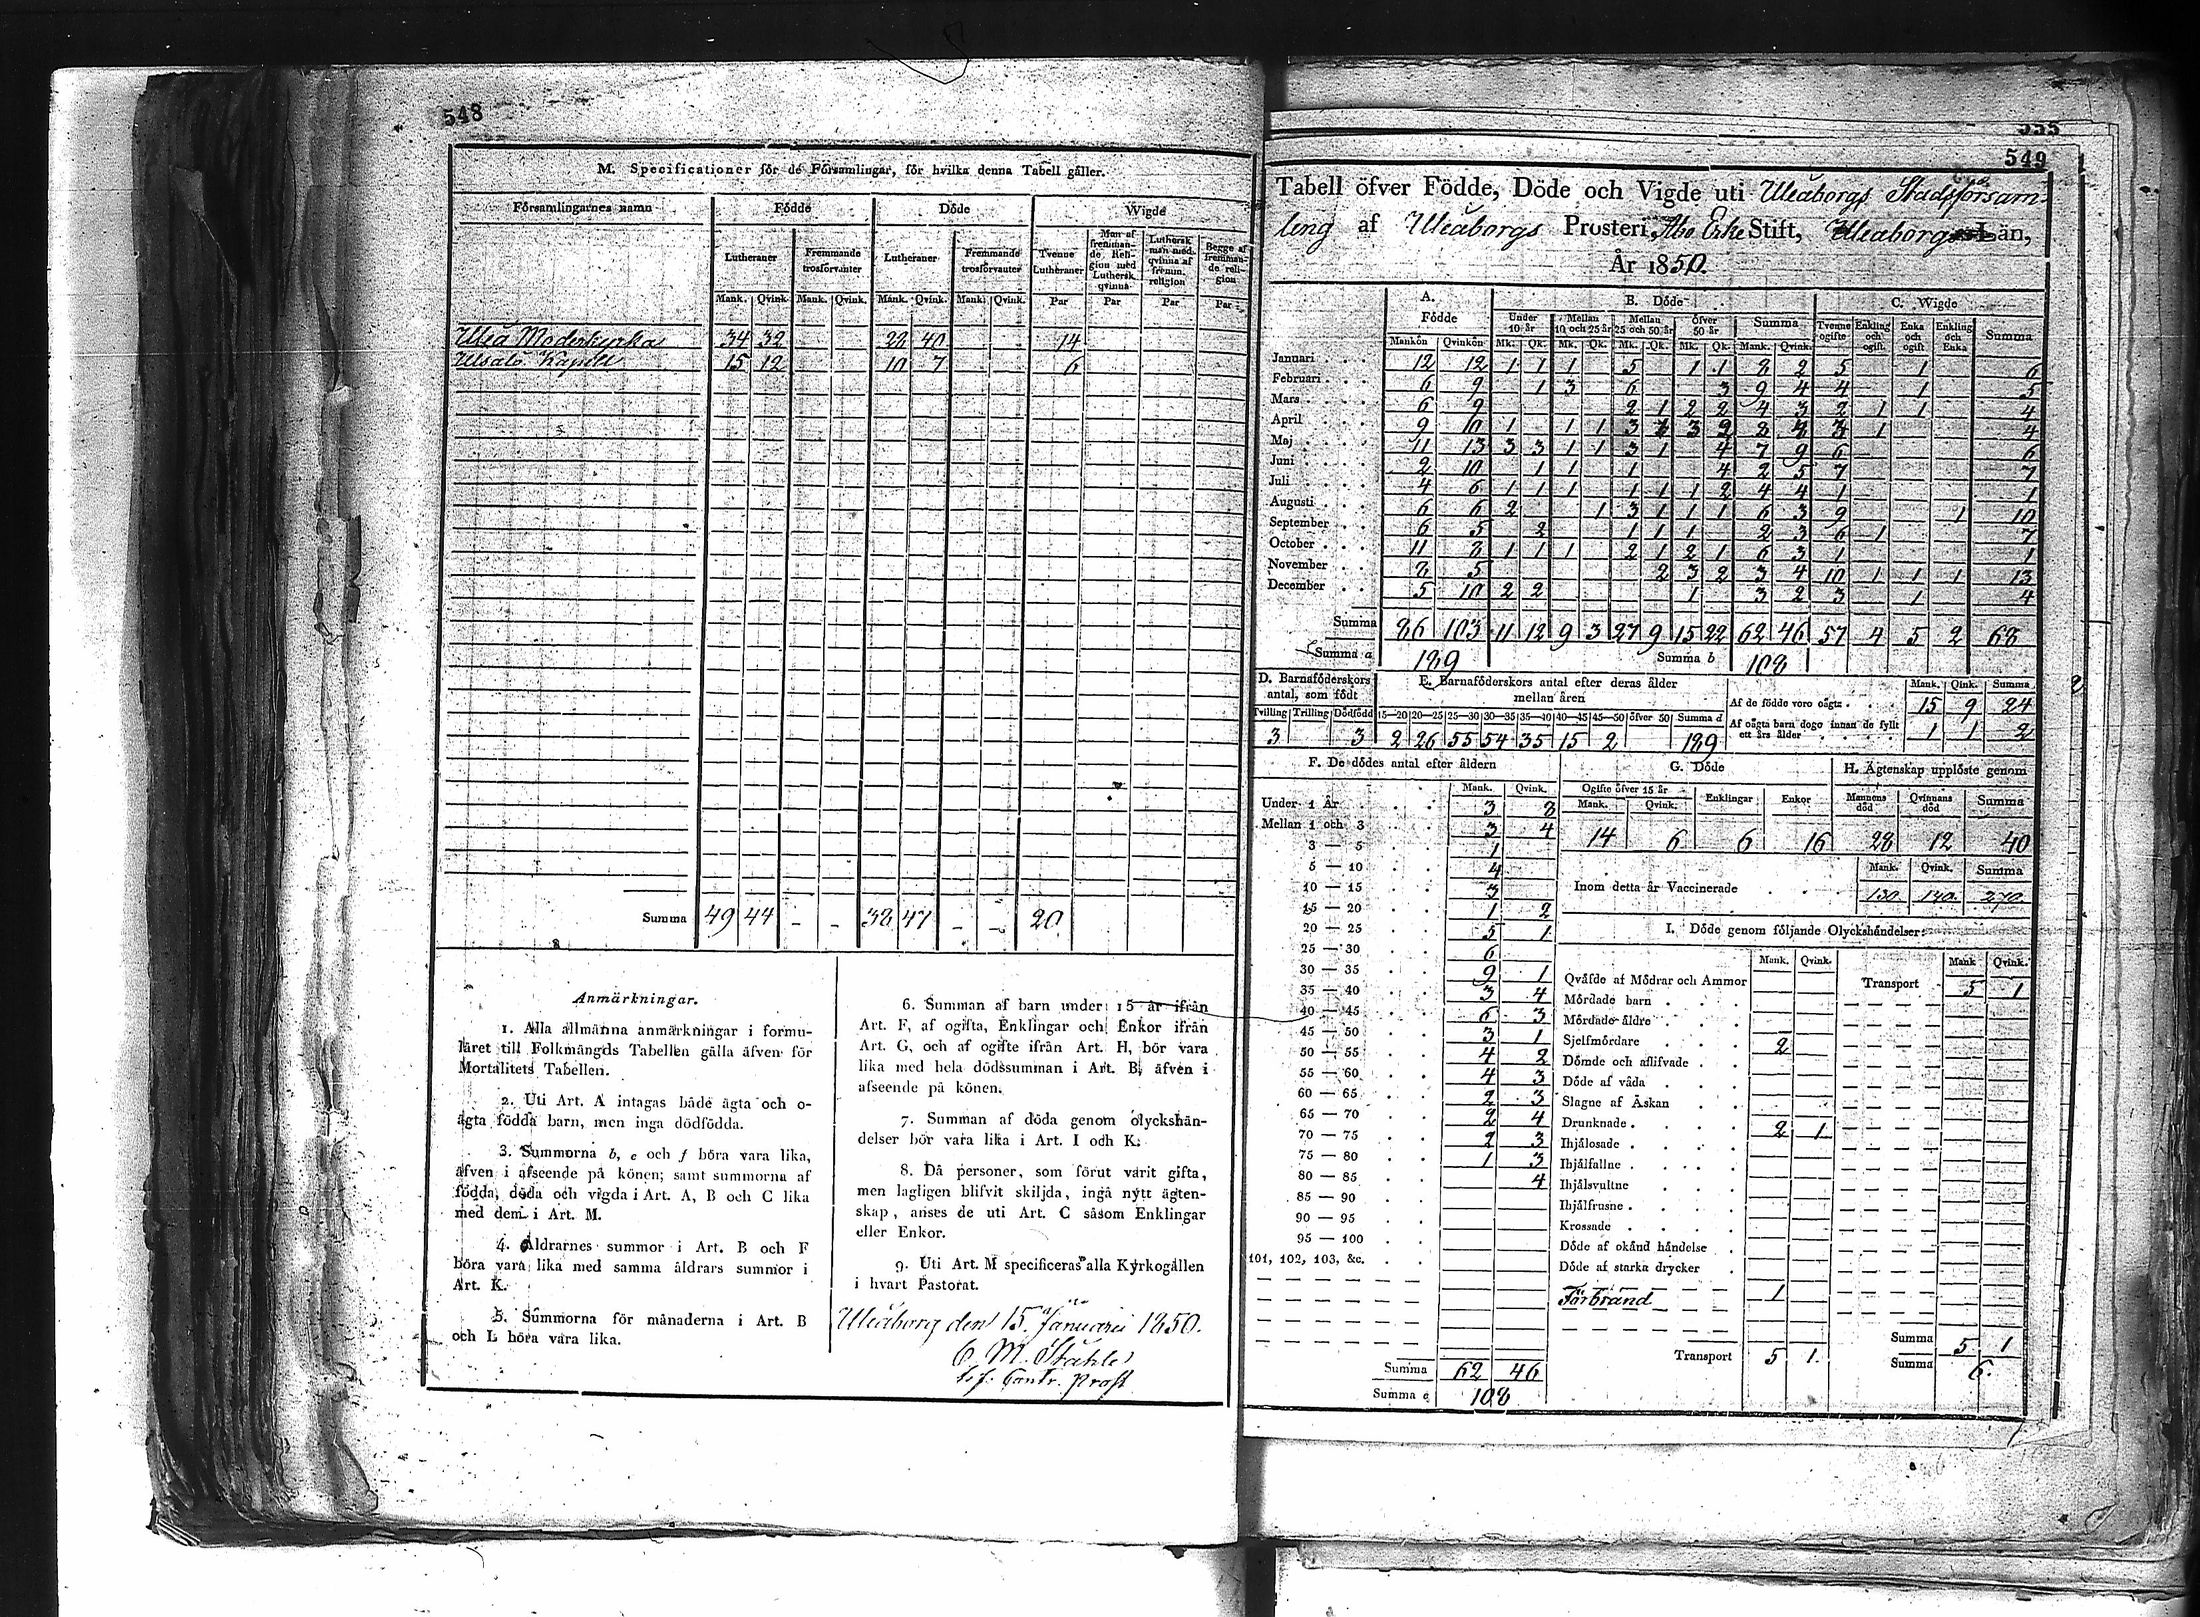 548
M. Specificationer för de Församlingar, för hvilka denna Tabell gäller.
Församlingarnes namn Födde Döde Wigde
Lutheraner Fremmande trosförvanter Lutheraner Fremmande trosförvanter Tvenne Lutheraner Man af fremmande Religion med Luthersk qvinna Luthersk man med qvinna af fremm. religion Begge af fremmande religion
Mank. Qvink. Mank. Qvink. Mank. Qvink. Mank. Qvink. Par Par Par Par
Uleå Moderkyrka 34 32 28 40 14
Ulsalo Kapell 15 12 10 7 6
Summa 49 44 - - 38 47 - - 20
Anmärkningar.
1. Alla allmänna anmärkningar i formu-
läret till Folkmängds Tabellen gälla äfven för
Mortalitets Tabellen.
2. Uti Art. A intagas både ägta och o-
ägta födda barn, men inga dödfödda.
3. Summorna b, e och f böra vara lika,
äfven i afseende på könen; samt summorna af
födda, döda och vigda i Art. A, B och C lika
med dem i Art. M.
4. Åldrarnes summor i Art. B och F
böra vara lika med samma åldrars summor i
Art. K.
5. Summorna för månaderna i Art. B
och L böra vara lika.
6. Summan af barn under 15 år ifrån
Art. F, af ogifta, Enklingar och Enkor ifrån
Art. G, och af ogifte ifrån Art. H, bör vara
lika med hela dödssumman i Art. B, äfven i
afseende på könen.
7. Summan af döda genom olyckshän-
delser bör vara lika i Art. I och K.
8. Då personer, som förut varit gifta,
men lagligen blifvit skiljda, ingå nytt ägten-
skap, anses de uti Art. C såsom Enklingar
eller Enkor.
9. Uti Art. M specificeras alla Kyrkogällen
i hvart Pastorat.
Uleåborg den 15 Januarii 1850.
C. M. Ståhle
Contr. Prost
555
549
Tabell öfver Födde, Döde och Vigde uti Uleåborgs Stadsförsam-
ling af Uleåborgs Prosteri, Åbo Erke Stift, Uleaborgs Län,
År 1850
A. Födde B. Döde C. Wigde
Under 10 år Mellan 10 och 25 år Mellan 25 och 50 år öfver 50 år Summa Tvenne ogifte Enkling och ogift Enka och ogift Enkling och Enka Summa
Mankön Qvinkön Mk. Qk. Mk. Qk. Mk. Qk. Mk. Qk. Mank. Qvink.
Januari 12 12 1 1 1 5 1 1 8 2 5 1 6
Februari 6 9 1 3 6 3 9 4 4 1 5
Mars 6 9 2 1 2 2 4 3 2 1 1 4
April 9 10 1 1 1 3 3 2 8 3 1 4
Maj 11 13 3 3 1 1 3 1 4 7 9 6 6
Juni 2 10 1 1 1 4 2 5 7 7
Juli 4 6 1 1 1 1 1 1 2 4 4 1 1
Augusti 6 6 2 1 3 1 1 1 6 3 9 1 10
September 6 5 2 1 1 1 2 3 6 1 7
October 11 8 1 1 1 2 1 2 1 6 3 1 1
November 8 5 2 3 2 3 4 10 1 1 1 13
December 5 10 2 2 1 3 2 3 1 4
Summa 86 103 11 12 9 3 27 9 15 22 62 46 57 4 5 2 68
Summa a 189 Summa b 108
D. Barnaföderskors antal, som födt
Tvilling Trilling Dödfödd
3 3
E. Barnaföderskors antal efter deras ålder mellan åren
15—20 20—25 25—30 30—35 35—40 40—45 45—50 öfver 50 Summa d
2 26 55 54 35 15 2 189
Mank. Qink. Summa
Af de födde voro oägta 15 9 24
Af oägta barn dogo innan de fyllt ett års ålder 1 1 2
F. De dödes antal efter åldern
Mank. Qvink.
Under 1 År 3 8
Mellan 1 och 3 3 4
3 — 5 1
5 — 10 4
10 — 15 3
15 — 20 1 2
20 — 25 5 1
25 — 30 6
30 — 35 9 1
35 — 40 3 4
40 — 45 6 3
45 — 50 3 1
50 — 55 4 2
55 — 60 4 3
60 — 65 2 3
65 — 70 2 4
70 — 75 2 3
75 — 80 1 3
80 — 85 4
85 — 90
90 — 95
95 — 100
101, 102, 103, &c.
Summa 62 46
Summa e 108
G. Döde
Ogifte öfver 15 år Enklingar Enkor
Mank. Qvink.
14 6 6 16
H. Ägtenskap upplöste genom
Mannens död Qvinnans död Summa
28 12 40
Mank. Qvink. Summa
Inom detta år Vaccinerade 130 140 270
I. Döde genom följande Olyckshändelser:
Mank. Qvink. Mank Qvink.
Qväfde af Mödrar och Ammor Transport 5 1
Mördade barn
Mördade äldre
Sjelfmördare 2
Dömde och aflifvade
Döde af våda
Slagne af Åskan
Drunknade 2 1
Ihjälosade
Ihjälfallne
Ihjälsvultne
Ihjälfrusne
Krossade
Döde af okänd händelse
Döde af starka drycker
Förbränd 1
Transport 5 1
Summa 5 1
Summa 6.